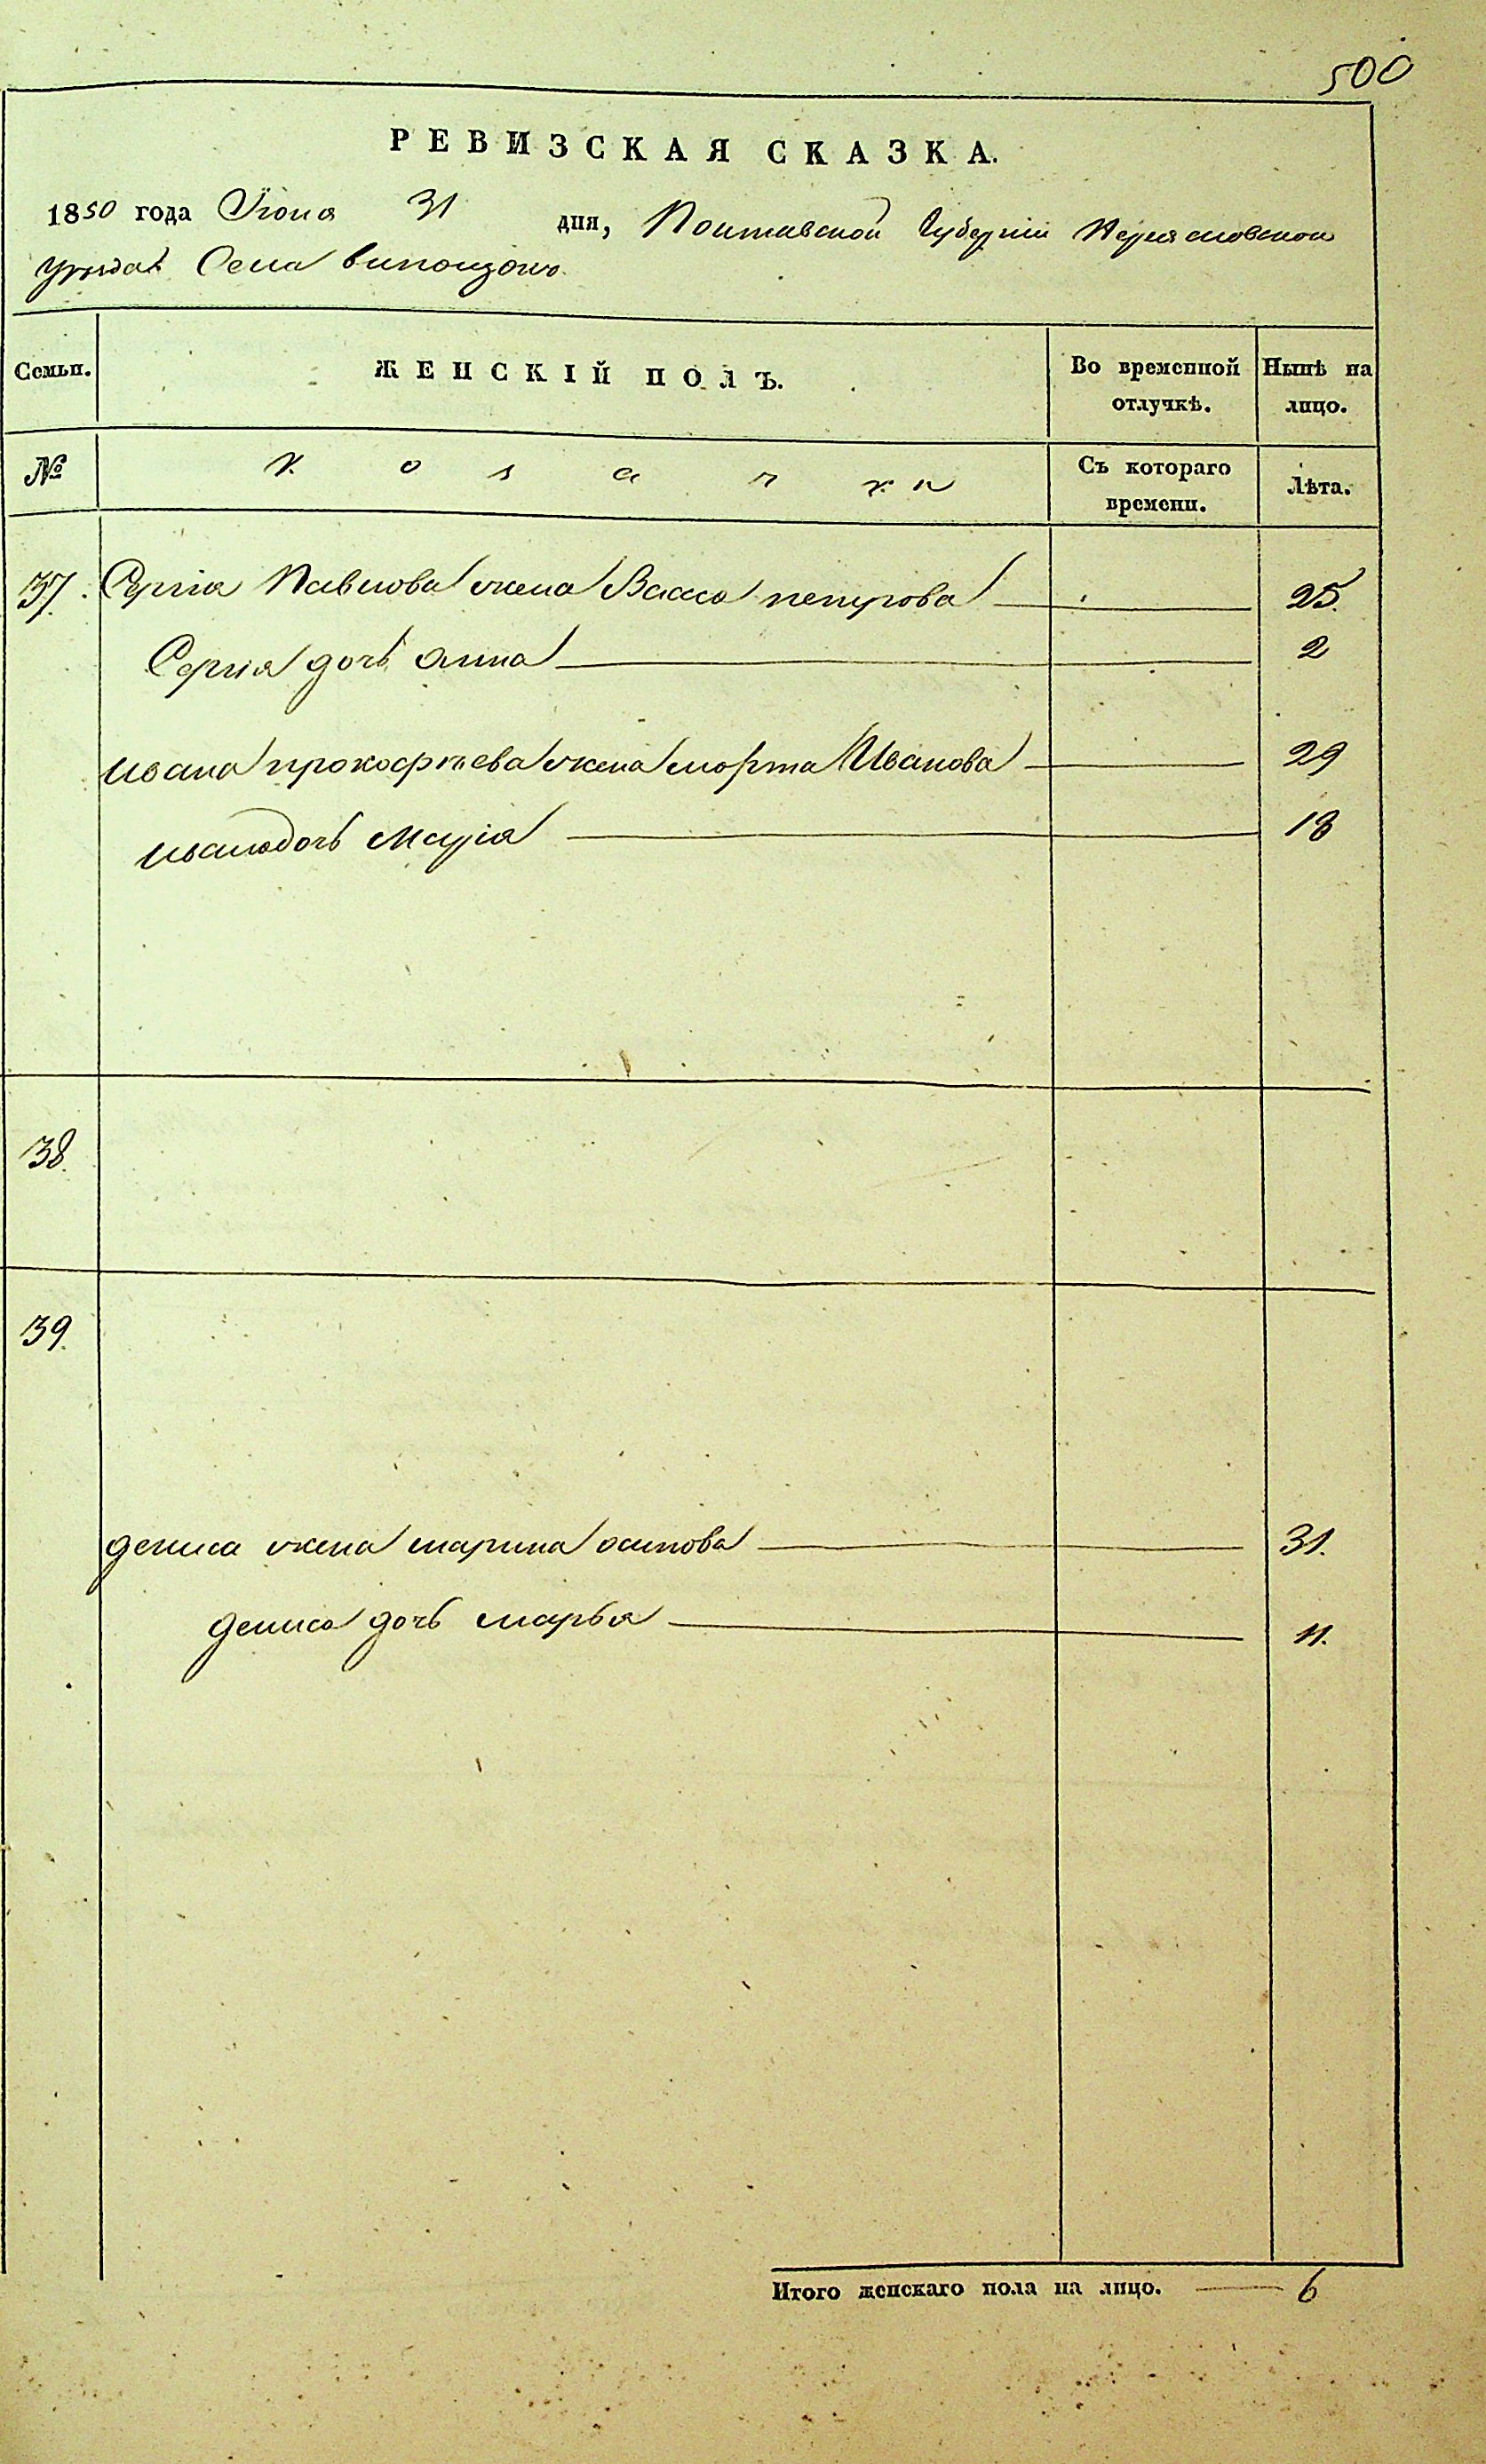 500
РЕВИЗСКАЯ СКАЗКА.
1850 года Іюня 31 дня, Полтавской Губерніи Переясловского
уезда Села Випользовъ
Семьи. ЖЕНСКІЙ ПОЛЪ. Во временной отлучкѣ. Нынѣ на лицо.
№ козачки Съ котораго времени. Лѣта.
37. Сергія Павлова жена Васса петрова 25.
Сергія дочь анна 2
ивана прокофъева жена марта Иванова 29
ивана дочь Марія 13
38.
39.
дениса жена марина осипова 31.
дениса дочь марья 11.
Итого женскаго пола на лицо. 6